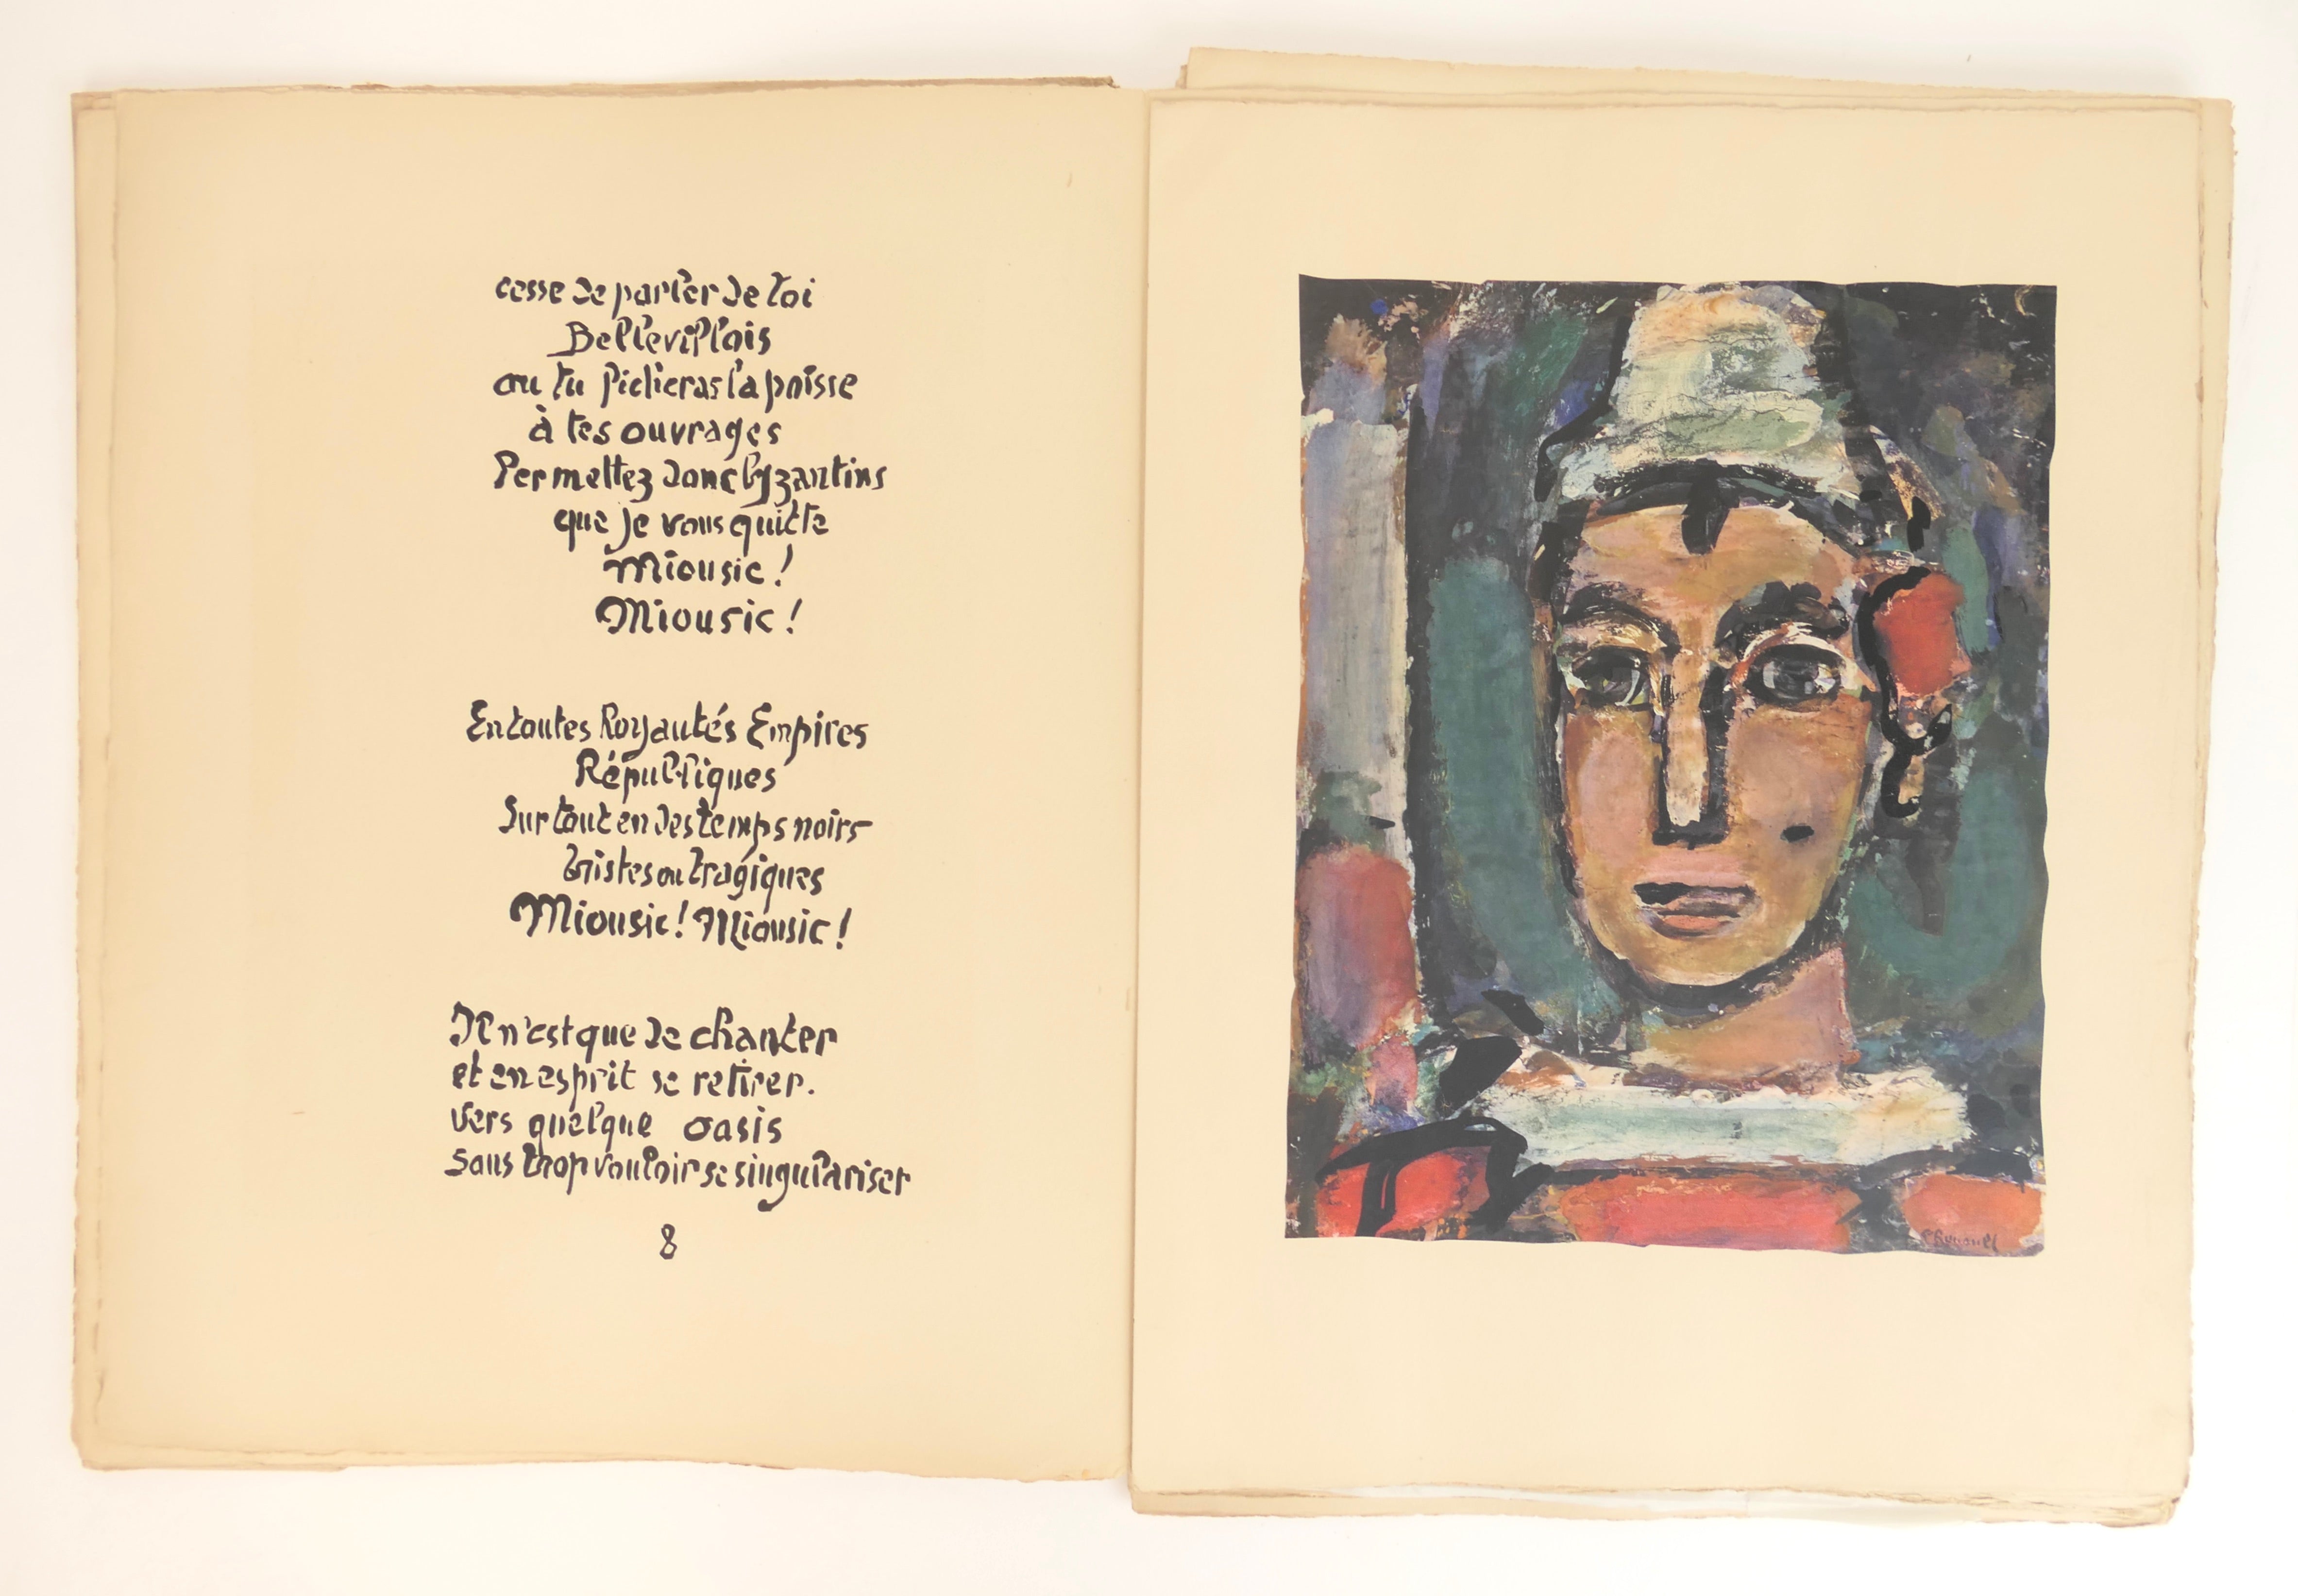 cesse de parler de toi
Bellevillois
ou tu ficheras la poisse
à tes ouvrages
Permettez donc byzantins
que je vous quitte
Miousic !
Miousic !
En toutes Royautés Empires
Républiques
Surtout en des temps noirs
tristes ou tragiques
Miousic ! Miousic !
Il n'est que de chanter
et en esprit se retirer.
vers quelque oasis
Sans trop vouloir se singulariser
8
G Rouault